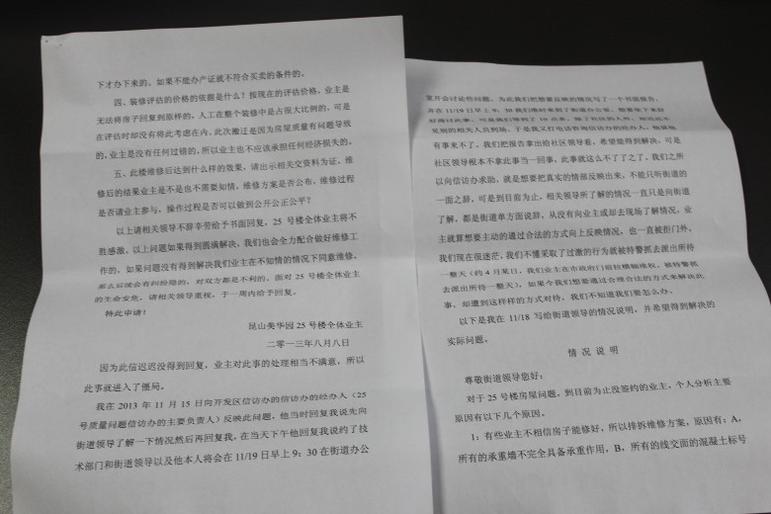 下才办下来的。如果不能办产证就不符合买卖的条件的。
四、装修评估的价格的依据是什么？按现在的评估价格，业主是
无法将房子回复到原样的，人工在整个装修中是占很大比例的，可是
在评估时却没有将此考虑在内。此次搬迁是因为房屋质量有问题导致
的，业主是没有任何过错的，所以业主也不应该承担任何经济损失的。
五、此楼维修后达到什么样的效果，请出示相关交资料为证，维
修后的结果业主是不是也不需要知情，维修方案是否公布，维修过程
是否请业主参与，操作过程是否可以做到公开公正公平？
以上请相关领导不辞辛劳给予书面回复，25 号楼全体业主将不
胜感激。以上问题如果得到圆满解决，我们也会全力配合做好维修工
作的，如果问题没有得到解决我们业主在不知情的情况下同意维修，
那么后续会有纠纷隐的，对双方都是不利的。面对 25 号楼全体业主
的生命安危，请相关领导重视，于一周内给予回复。
特此申请！
昆山美华园 25 号楼全体业主
二零一三年八月八日
因为此信迟迟没得到回复，业主对此事的处理相当不满意，所以
此事就进入了僵局。
我在 2013 年 11 月 15 日向开发区信访办的信访办的经办人（25
号质量问题信访办的主要负责人）反映此问题，他当时回复我说先向
街道领导了解一下情况然后再回复我，在当天下午他回复我说约了技
术部门和街道领导以及他本人将会在 11/19 日早上 9：30 在街道办公
室开会讨论些问题，为此我们把想要反映的情况写了一个书面报告，
并在 11/19 日早上 9：30 我们准时来到了街道办公室，
见到的相关人员到场，于是我又打电话咨询信访办的经办人，他说他
有事来不了。我们把报告拿出给社区领导看，希望能得到解决，可是
社区领导根本不拿此事当一回事，此事就这么不了了之了。我们之所
以向信访办求助，就是想要把真实的情部反映出来，不能只听街道的
一面之辞，可是到目前为止，相关领导所了解的情况一直只是向街道
了解，都是街道单方面说辞，从没有向业主或却去现场了解情况，业
主就算想要主动的通过合法的方式向上反映情况，也一直被拒门外。
我们现在很迷茫，我们不懂采取了过激的行为就被特警抓去派出所待
一整天（约 4 月某日，我们业主在市政府门前拉横幅维权，被特警抓
去派出所待一整天），如果今我们想要通过合理合法的方式来解决此
事，却遭到这样样的方式对待，我们不知道我们要怎么办。
以下是我在 11/18 写给街道领导的情况说明，并希望得到解决的
实际问题。
情 况 说 明
尊敬街道领导您好：
对于 25 号楼房屋问题，到目前为止没签约的业主，个人分析主要
原因有以下几个原因。
1：有些业主不相信房子能修好，所以排拆维修方案，原因有：A，
所有的承重墙不完全具备承重作用，B，所有的线交面的混凝土标号